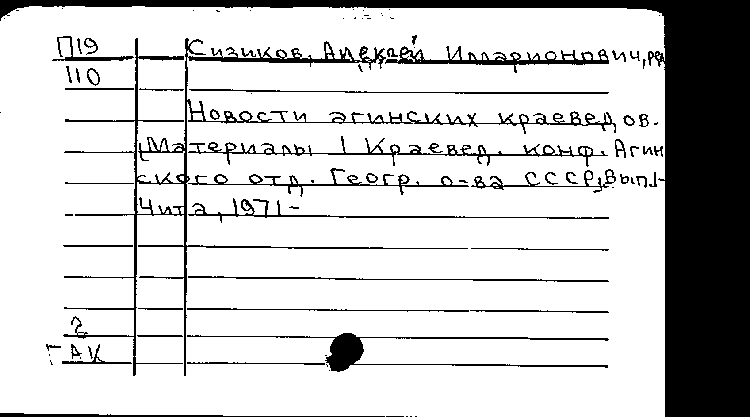 П19 Сизиков, Алексей Илларионович, ред
110
Новости агинских краеведов.
[Материалы I Краевед. конф. Агин
ского отд. Геогр. о-ва СССР, Вып.1-
Чита, 1971-
2
ГАК